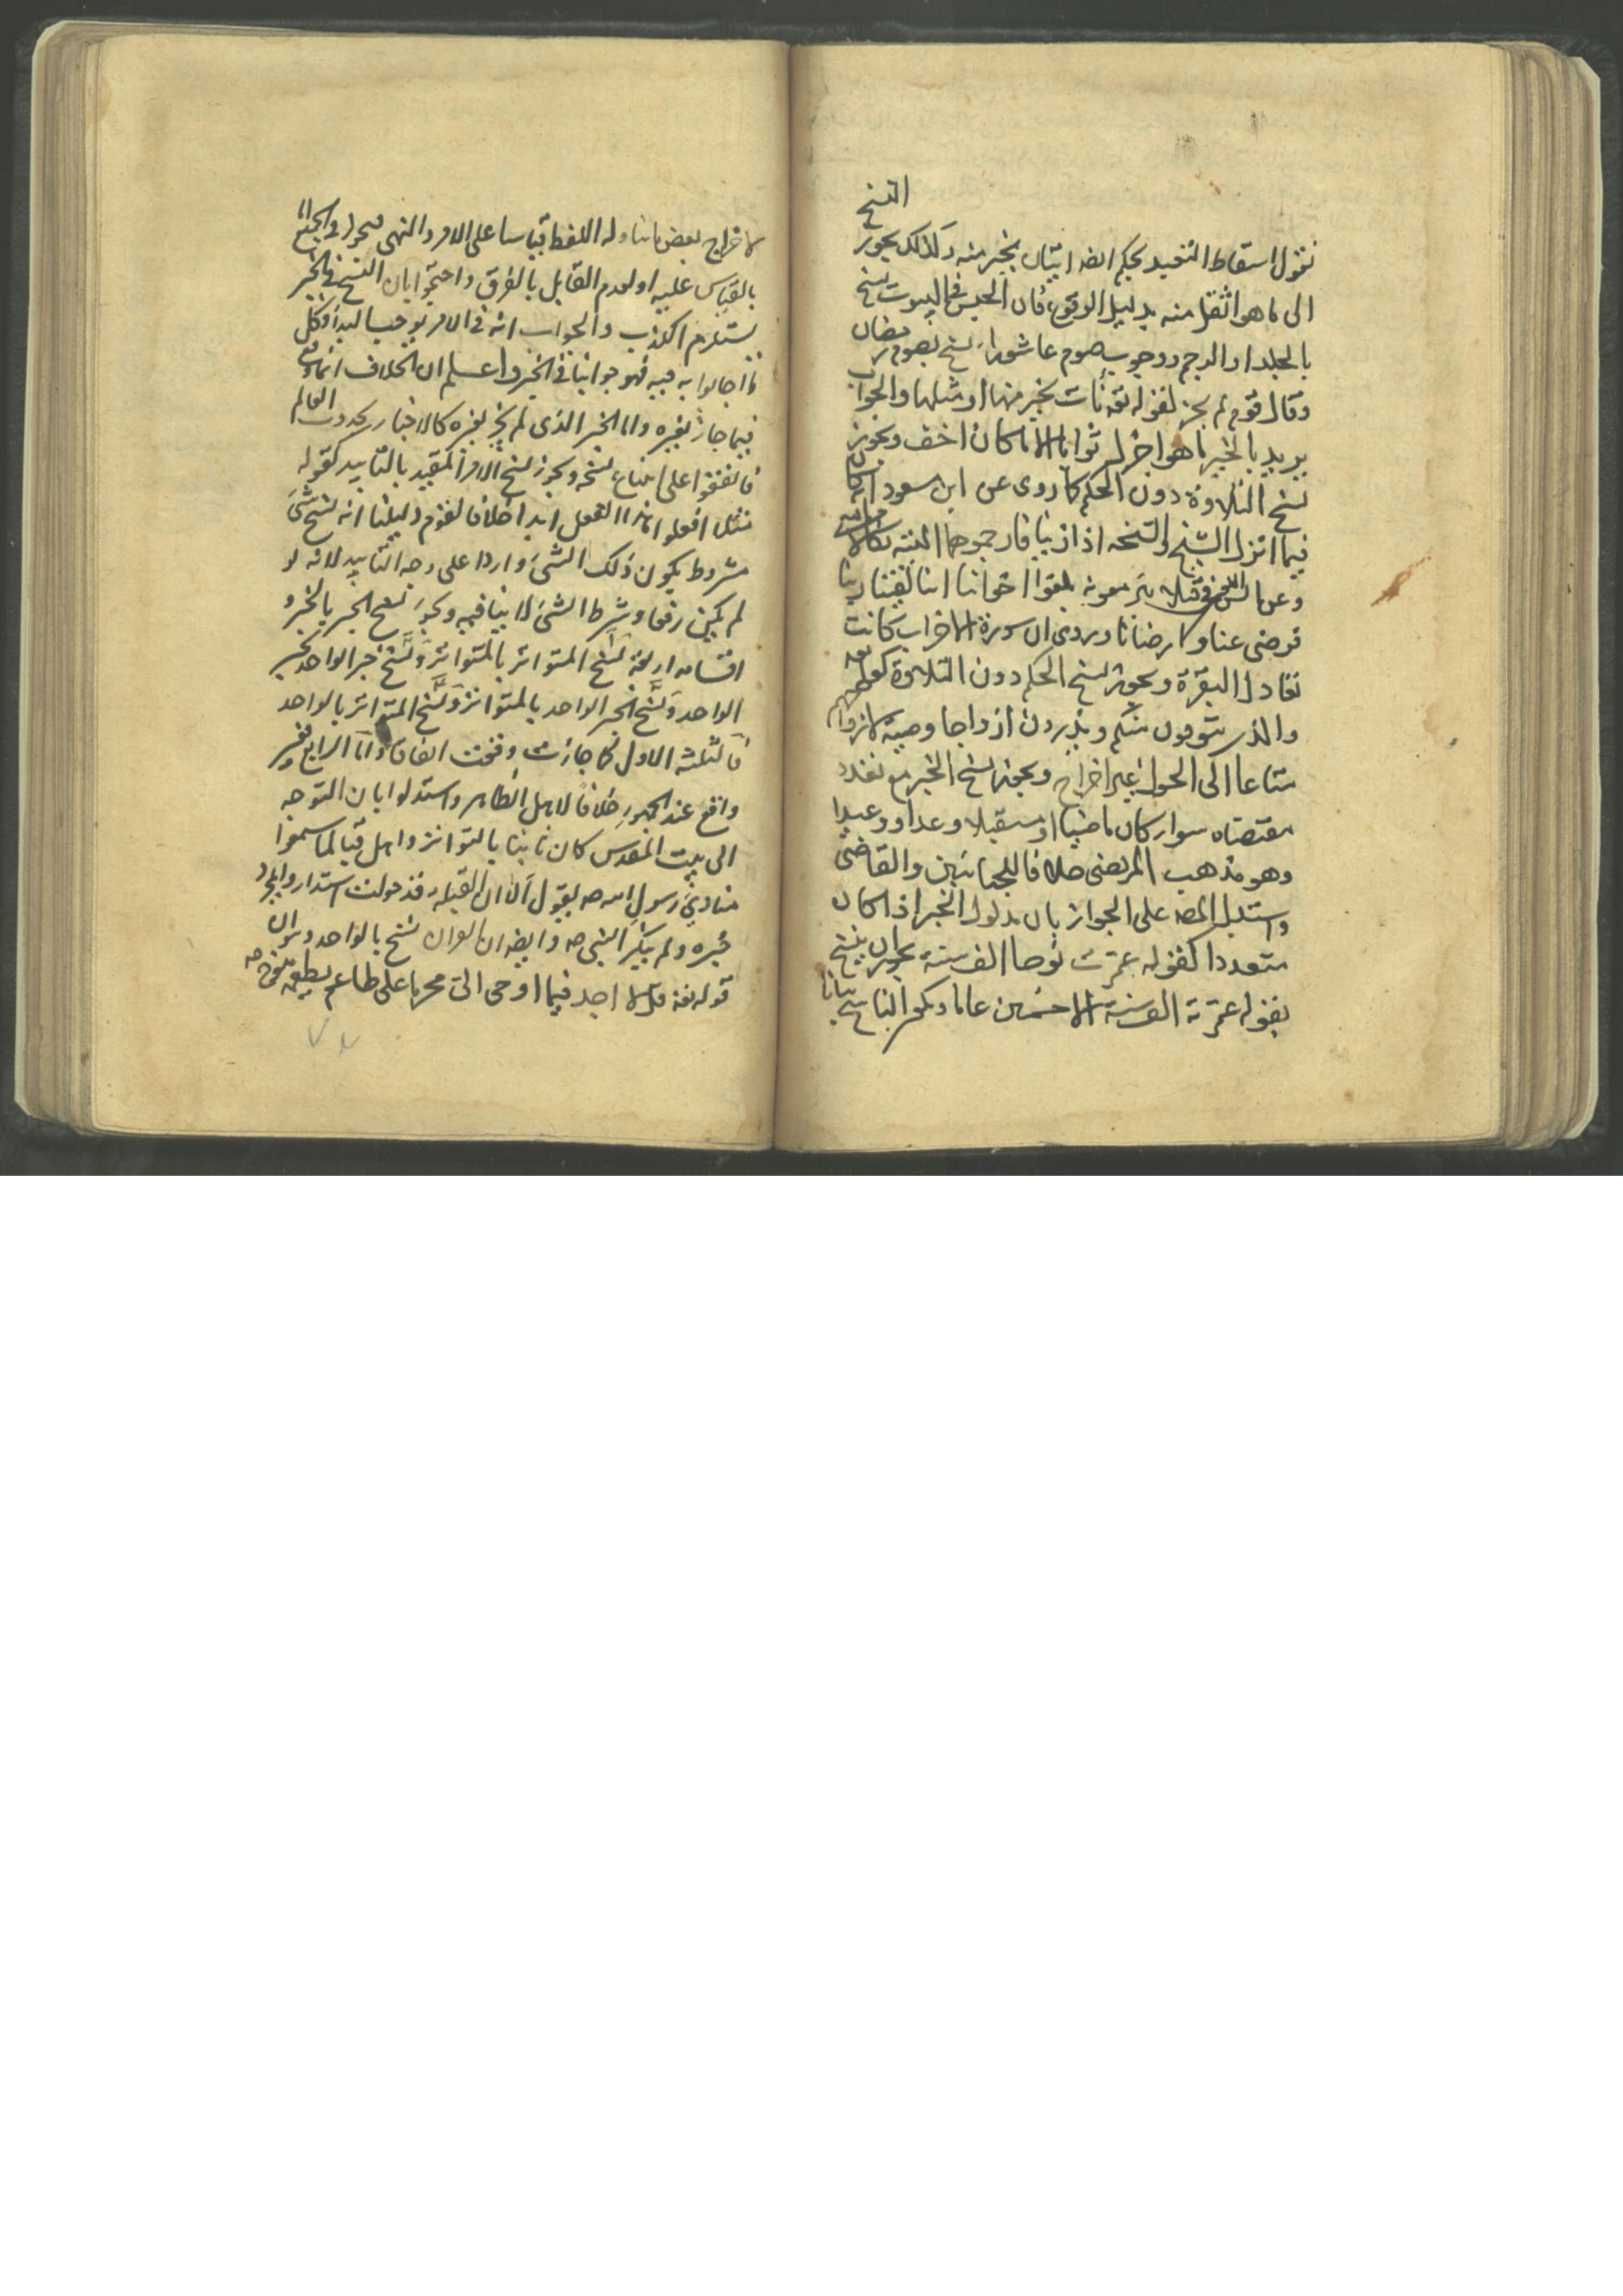 النسخ
نقول اسقاط التعبد بحكم ايضا اتيان بخير منه وكذلك يجوز
الى ما هو اثقل منه بدليل الوقوع فان الحبس في البيوت نسخ
بالجلد او الرجم ووجوب صوم عاشوراء نسخ بصوم رمضان
وقال قوم لم يجز لقوله تعه نأت بخير منها او مثلها والجواب
يريد بالخير ما هو اجزل ثوابا لا ما كان اخف ويجوز
نسخ التلاوة دون الحكم كما روى عن ابن مسعود انه كان
فيما انزل الشيخ والشيخة اذا زنيا فارجموهما البتة نكالا من الله
وعن انس في قتلى بئر معونة بلغوا اخواننا اننا لقينا ربنا
فرضى عنا وارضانا وروى ان سورة الاحزاب كانت
تعادل البقرة ويجوز نسخ الحكم دون التلاوة كقوله تعه
والذين يتوفون منكم ويذرون ازواجا وصية لازواجهم
متاعا الى الحول غير اخراج ويجوز نسخ الخبر مع تعدد
مقتضاه سواء كان ماضيا او مستقبلا وعدا او وعيدا
وهو مذهب المرتضى خلافا للجبائيين والقاضى
واستدل المصه على الجواز بان مدلول الخبر اذا كان
متعددا كقوله عمرت نوحا الف سنة يجوز ان ينسخ
بقوله عمرته الف سنة الا خمسين عاما ويكون الناسخ بيانا
لاخراج بعض ما تناوله اللفظ قياسا على الامر والنهى
بالقياس عليه او لعدم القايل بالفرق واحتجوا بان النسخ في الخبر
يستلزم الكذب والجواب انه في الامر يوجب البداء وكل
ما اجابوا به فيه فهو جوابنا في الخبر واعلم ان الخلاف انما وقع
فيما جاز تغيره واما الخبر الذى لم يجز تغيره كالاخبار بحدوث العالم
فاتفقوا على امتناع نسخه ويجوز نسخ الامر المقيد بالتأبيد كقوله
مثلا افعلوا هذا الفعل ابدا خلافا لقوم دليلنا انه نسخ شئ
مشروط بكون ذلك الشئ واردا على وجه التأبيد لانه لو
لم يكن رفعا وشرط الشئ لا ينافيه ويجوز نسخ الخبر بالخبر و
اقسامه اربعة نسخ المتواتر بالمتواتر ونسخ خبر الواحد بخبر
الواحد ونسخ خبر الواحد بالمتواتر ونسخ المتواتر بالواحد
فالثلثة الاول كما جازت وقعت اتفاقا واما الرابع فغير
واقع عند الجمهور خلافا لاهل الظاهر واستدلوا بان التوجه
الى بيت المقدس كان ثابتا بالتواتر واهل قبا لما سمعوا
منادى رسول الله صه يقول الا ان القبلة قد حولت استداروا بمجرد
خبره ولم ينكر النبى صه وايضه ان القران نسخ بالواحد
قوله تعه قل لا اجد فيما اوحى الى محرما على طاعم يطعمه